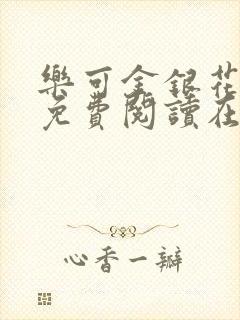 樂可金銀花
免費閱讀在
心香一瓣